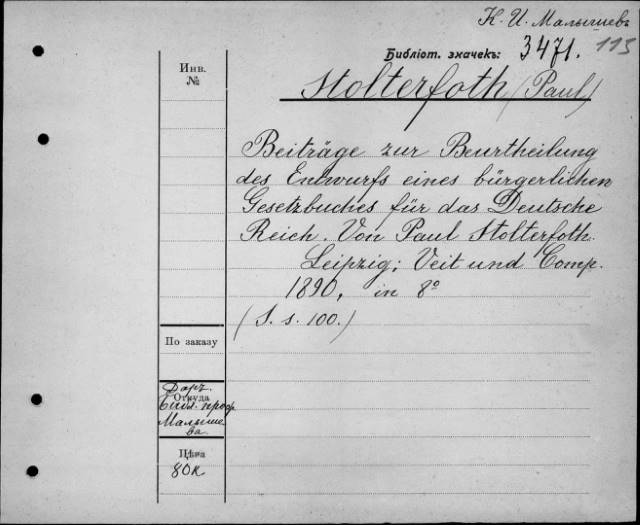 К. И. Малышевъ
115
Библіот. значекъ: 3471.
Инв.
№
Stolterfoth (Paul)
Beiträge zur Beurtheilung
des Entwurfs eines bürgerlichen
Gesetzbuches für das Deutsche
Reich. Von Paul Stolterfoth.
Leipzig; Veit und Comp.
1890, in 8º
(S. s. 100.)
По заказу
Откуда
Даръ
Библ. проф
Малыше
ва.
Цѣна
80к